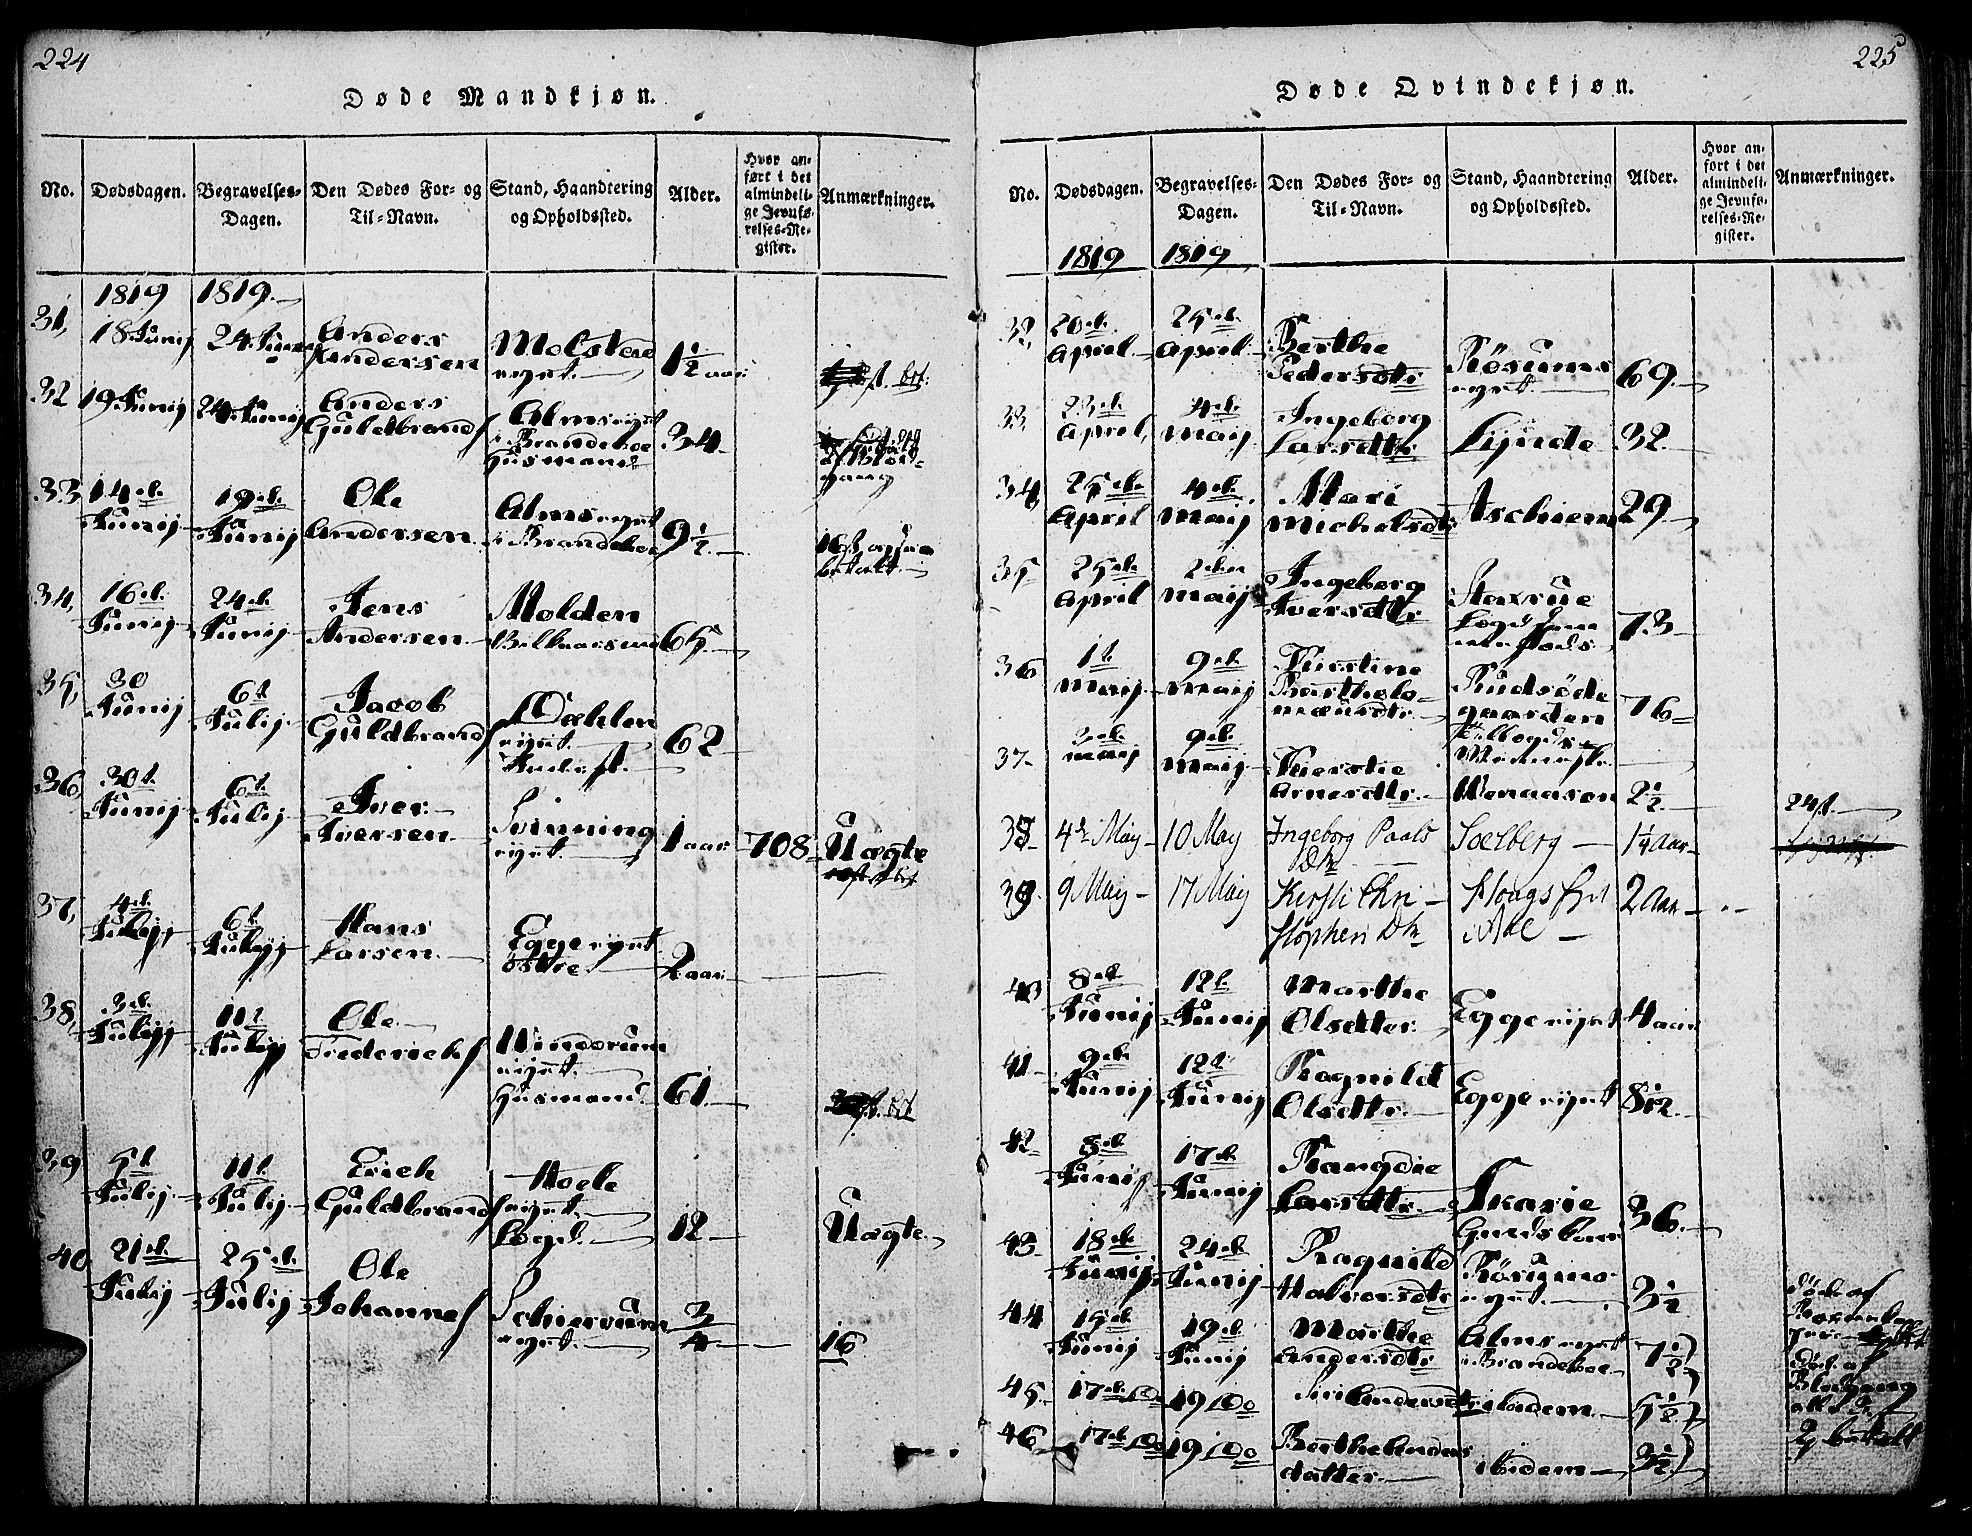 224
Døde Mandkjøn.
No. Dødsdagen. Begravelses-Dagen. Den Dødes For- og Til-Navn. Stand, Haandtering og Opholdssted. Alder. Hvor anført i det almindelige Jevnførelses-Register. Anmærkninger.
1819 1819
31, 18 Junij 24 Junij Anders Andersen Molstad eyet 1½ aar
32 19 Junij 24 Junij Anders Guldbrands Alms eyet i Brandeboe Husmand 34
33 14d. Junij 19d. Junij Ole Andersen Alms eyet i Brandeboe 9½
34, 16d. Junij 24d. Junij Jens Andersen Molden 65
35, 30 Junij 6t Julij Jacob Guldbrands Dæhlen eyet 62
36, 30t Junij 6t Julij Iver Iversen Svinning eyet 1 aar 708 Uægte
37, 4d. Julij 6t Julij Hans Larsen Egge eyet østre 2 aar
38, 3d. Julij 11t Julij Ole Frederichs Windorum eyet Husmand 61
39 5t Julij 11t Julij Erich Guldbrands Hoele eyet Logd. 12 Uægte
40 21d. Julij 25d. Julij Ole Johannes Schiervum eyet 3/4 16
225
Døde Qvindekjøn.
No. Dødsdagen. Begravelses-Dagen. Den Dødes For- og Til-Navn. Stand, Haandtering og Opholdssted. Alder. Hvor anført i det almindelige Jevnførelses-Register. Anmærkninger.
1819 1819
32, 20d. April 25d. April Berthe Pedersdtr Røsums eyet 69
33 23d. April 4d. Maij Ingeborg Larsdtr Lynde 32
34 25d. April 4d. Maij Mari Michelsdtr Aschiem 29
35 25d. April 2den Maij Ingeborg Iversdtr Staxrue 73
36 1t Maij 9d. Maij Kirstine Bartholomæusdtr Rudsøde gaarden 76
37 3d. Maij 9d. Maij Kierstie Arnesdtr Wenaasen 2½ 24s.
38 4de Maij 10 Maij Ingeborg Paals Dtr Soelberg 1¼ Aar
39 9 Maij 17 Maij Kersti Christophen Dtr i Aal 2 Aar
40 8d. Junij 12t. Junij Marthe Olsdtter Egge eyet 4 aar
41 9d. Junij 12t. Junij Ragnild Olsdtr Egge eyet 8½
42 8d. Junij 17d. Junij Rangdie Larsdtr Skarie 36
43 18d. Junij 24d. Junij Ragnild Halvorsdtr Røsums eyet 3½
44 15d. Junij 19d. Junij Marthe Andersdtr Alms eyet i Brandeboe 7½
45 17d. Do 19 Do Siri Andersdtr ibidem 5½
46 17d. Do 19 Do Berthe Anders datter ibidem 3½
Død af
Død af Blodgang